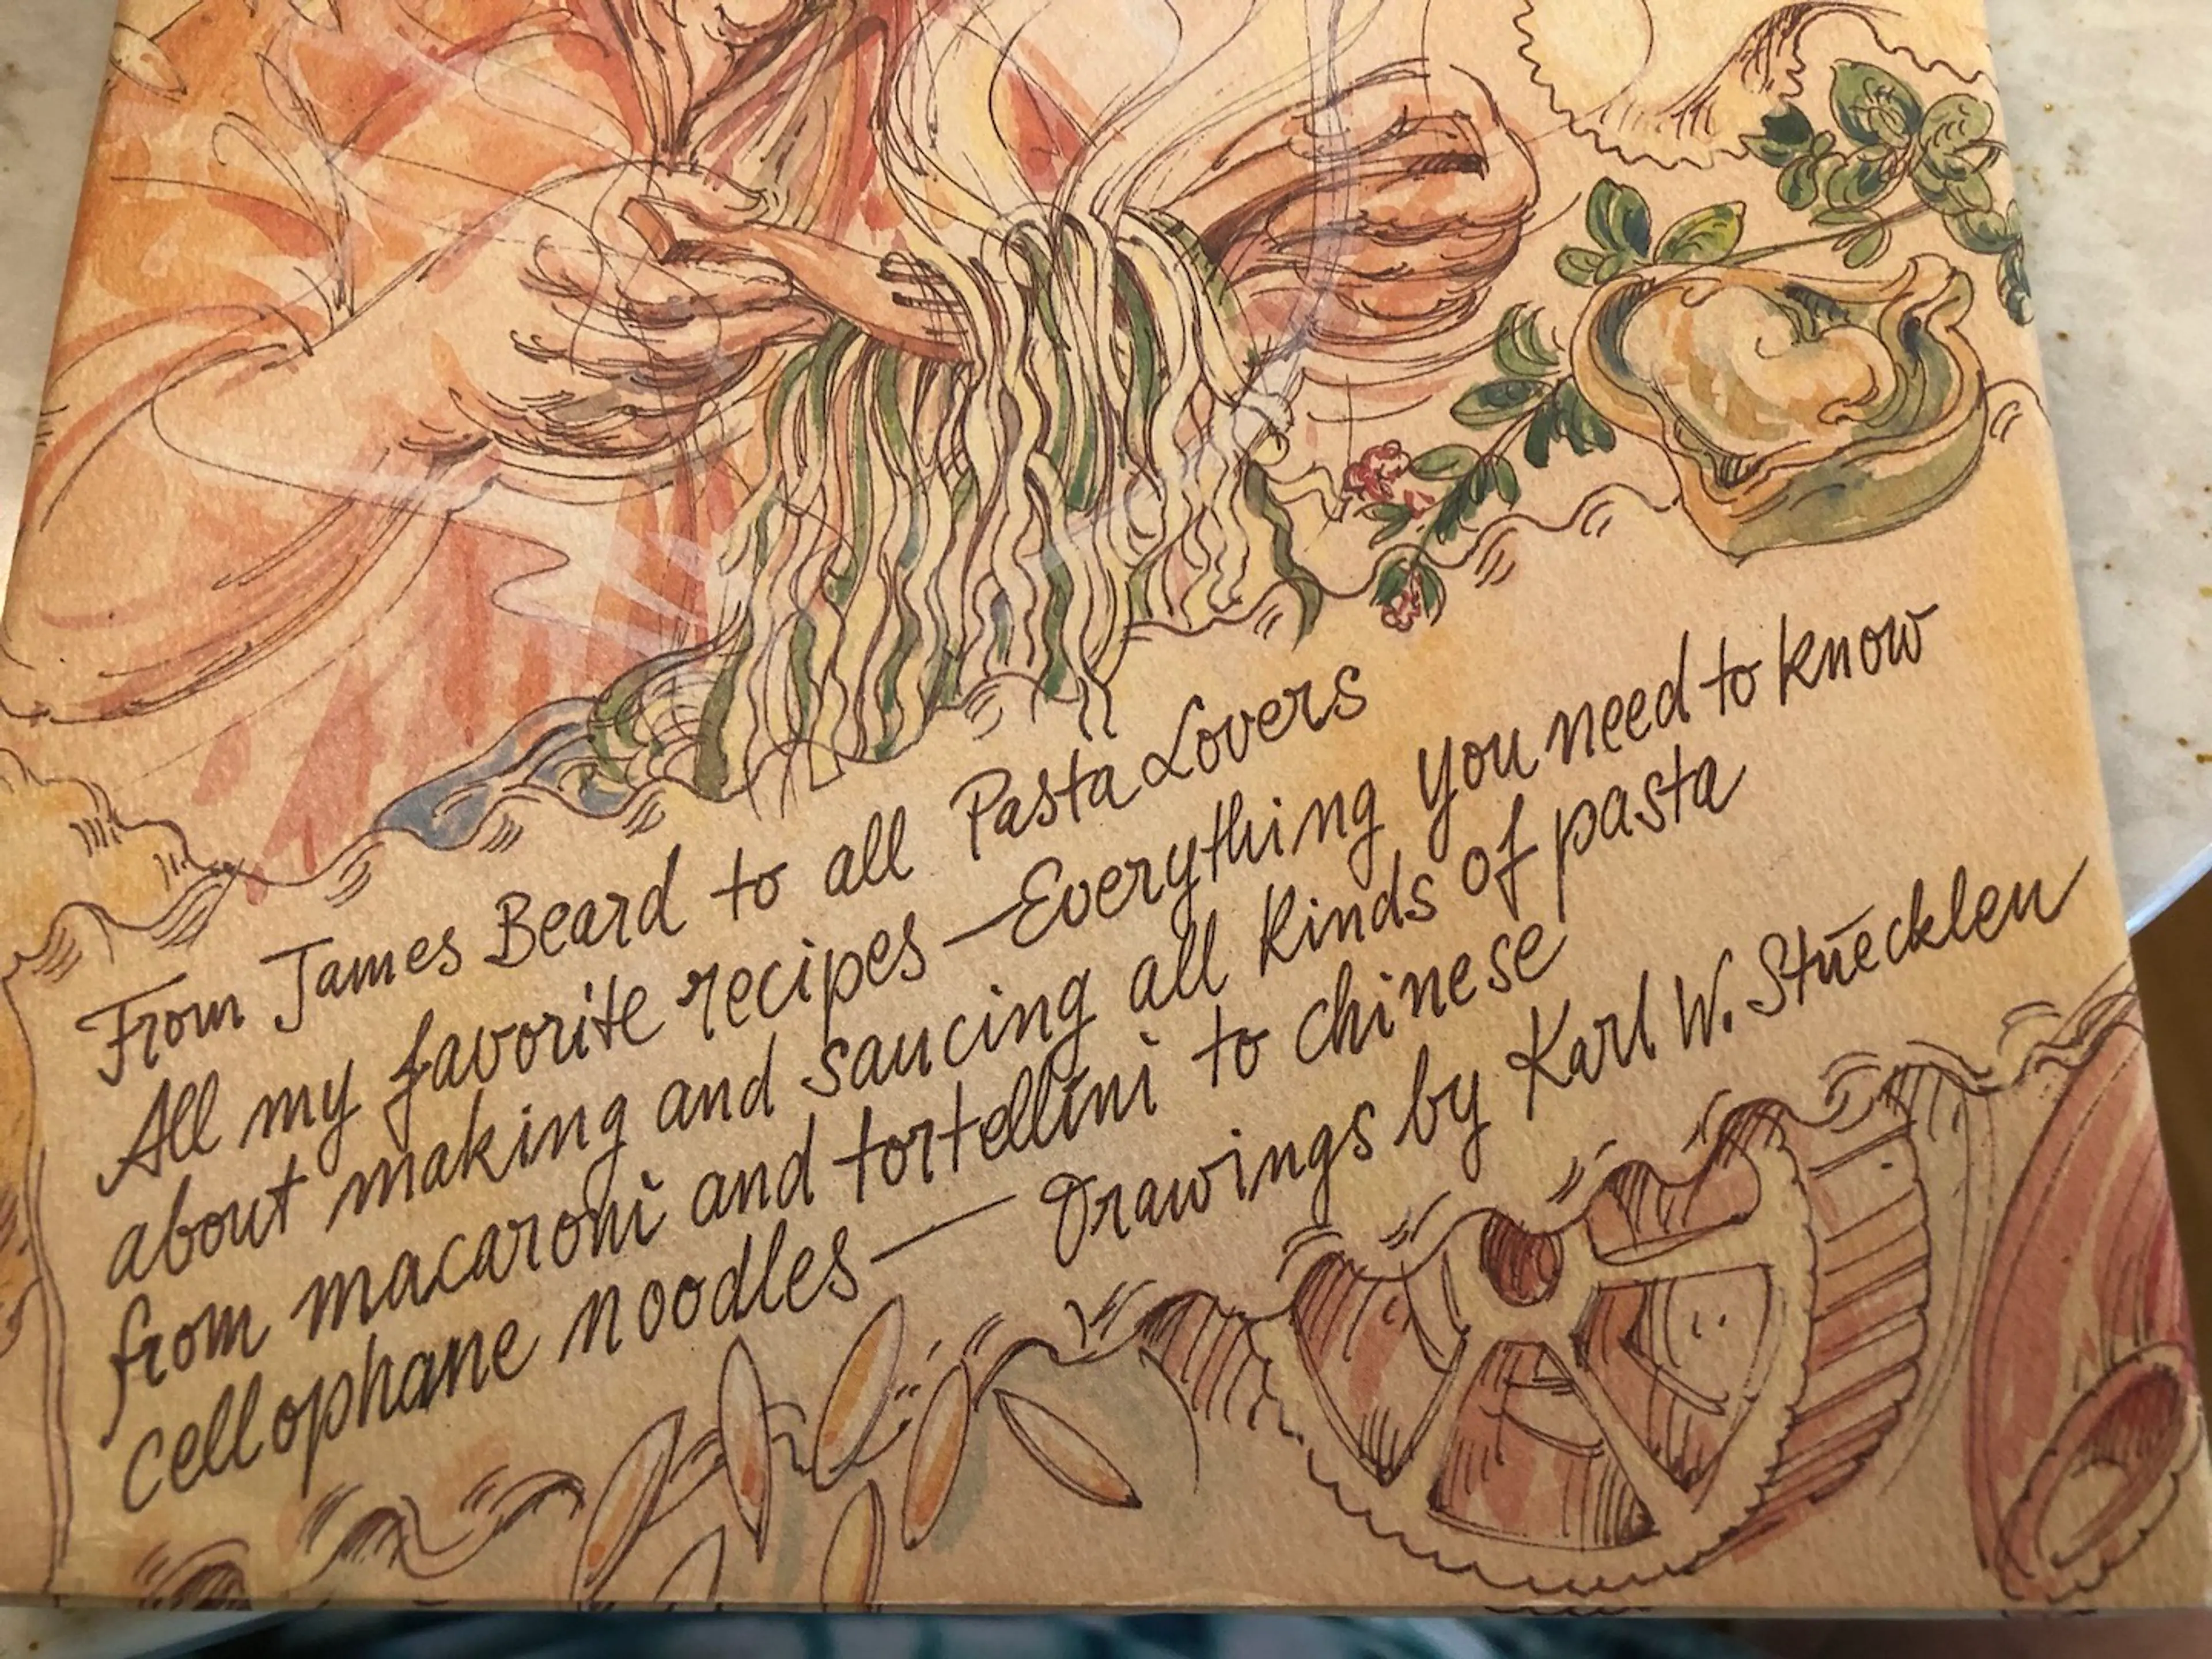 From James Beard to all Pasta Lovers
All my favorite recipes—Everything you need to know
about making and saucing all kinds of pasta
from macaroni and tortellini to chinese
cellophane noodles— Drawings by Karl W. Stuecklen